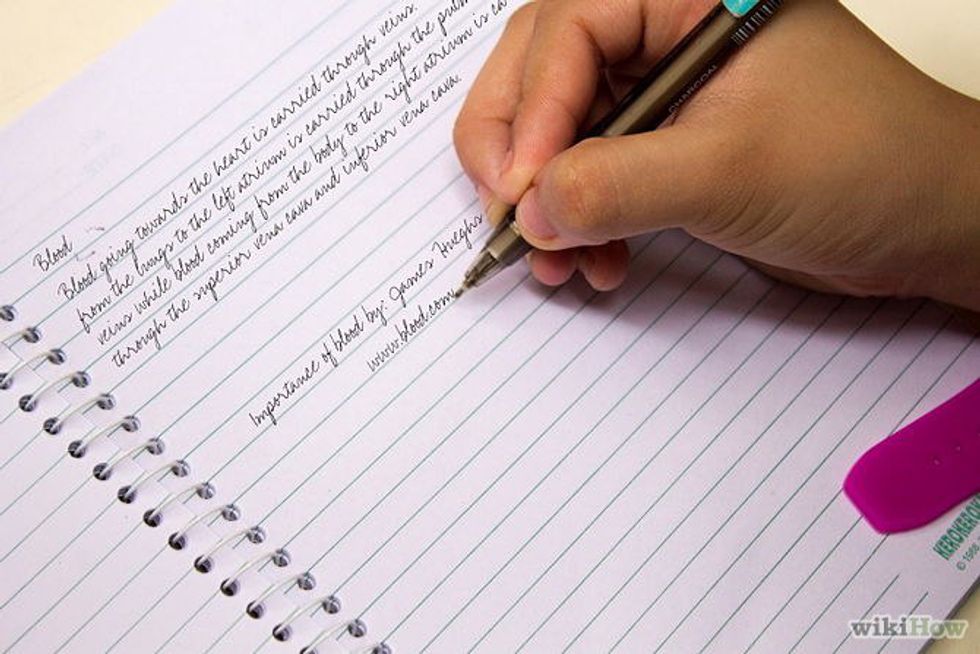 Blood
Blood going towards the heart is carried through veins.
from the lungs to the left atrium is carried through the pulm
veins while blood coming from the body to the right atrium is ca
through the superior vena cava and inferior vena cava.
Importance of blood by: James Hueghs
www.blood.com
CHARCOAL
KEROKERO
© 19
wikiHow